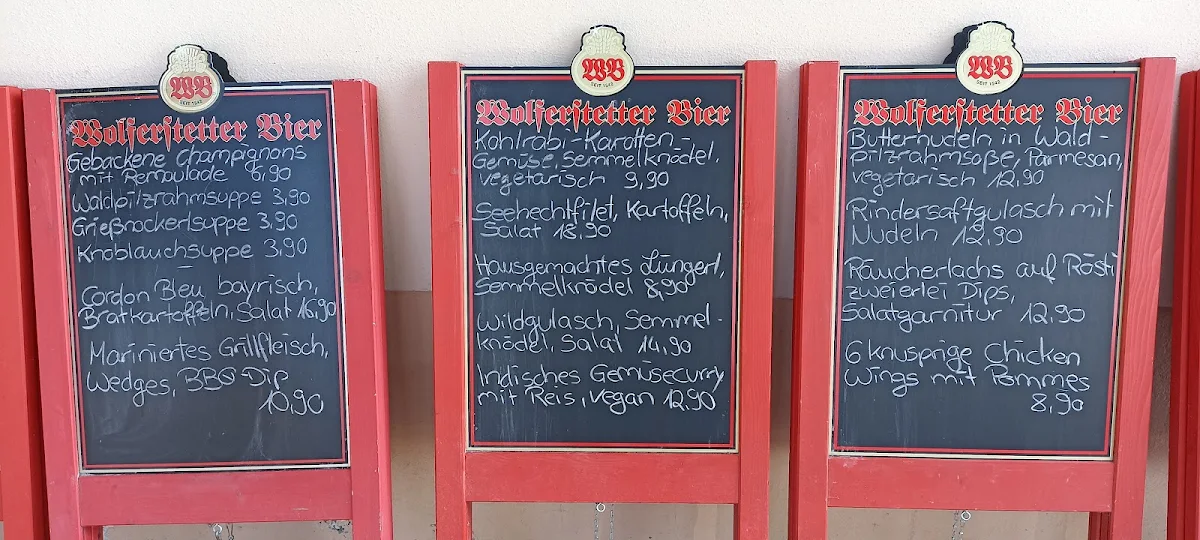 WB
SEIT 1543
Wolferstetter Bier
Gebackene Champignons
mit Remoulade 6,90
Waldpilzrahmsuppe 3,90
Grießnockerlsuppe 3,90
Knoblauchsuppe 3,90
Cordon Bleu bayrisch,
Bratkartoffeln, Salat 16,90
Mariniertes Grillfleisch,
Wedges, BBQ Dip
10,90
WB
SEIT 1543
Wolferstetter Bier
Kohlrabi-Karotten-
Gemüse, Semmelknödel,
vegetarisch 9,90
Seehechtfilet, Kartoffeln,
Salat 18,90
Hausgemachtes Lüngerl,
Semmelknödel 8,90
Wildgulasch, Semmel-
knödel, Salat 14,90
Indisches Gemüsecurry
mit Reis, vegan 12,90
WB
SEIT 1543
Wolferstetter Bier
Butternudeln in Wald-
pilzrahmsoße, Parmesan,
vegetarisch 12,90
Rindersaftgulasch mit
Nudeln 12,90
Räucherlachs auf Rösti
zweierlei Dips,
Salatgarnitur 12,90
6 knusprige Chicken
Wings mit Pommes
8,90